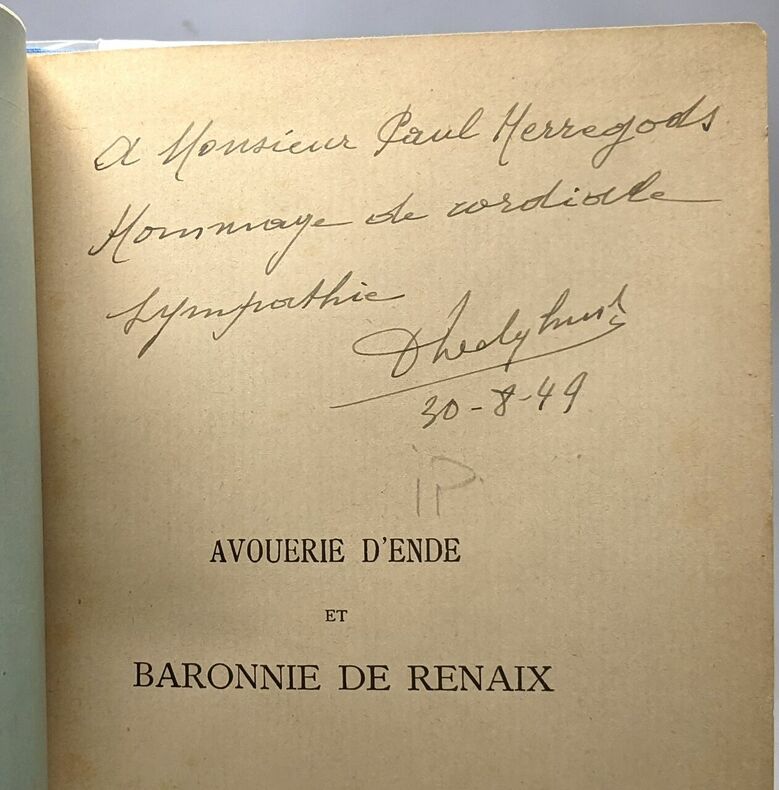 A Monsieur Paul Herregods
Hommage de cordiale
sympathie
30-8-49
AVOUERIE D'ENDE
ET
BARONNIE DE RENAIX